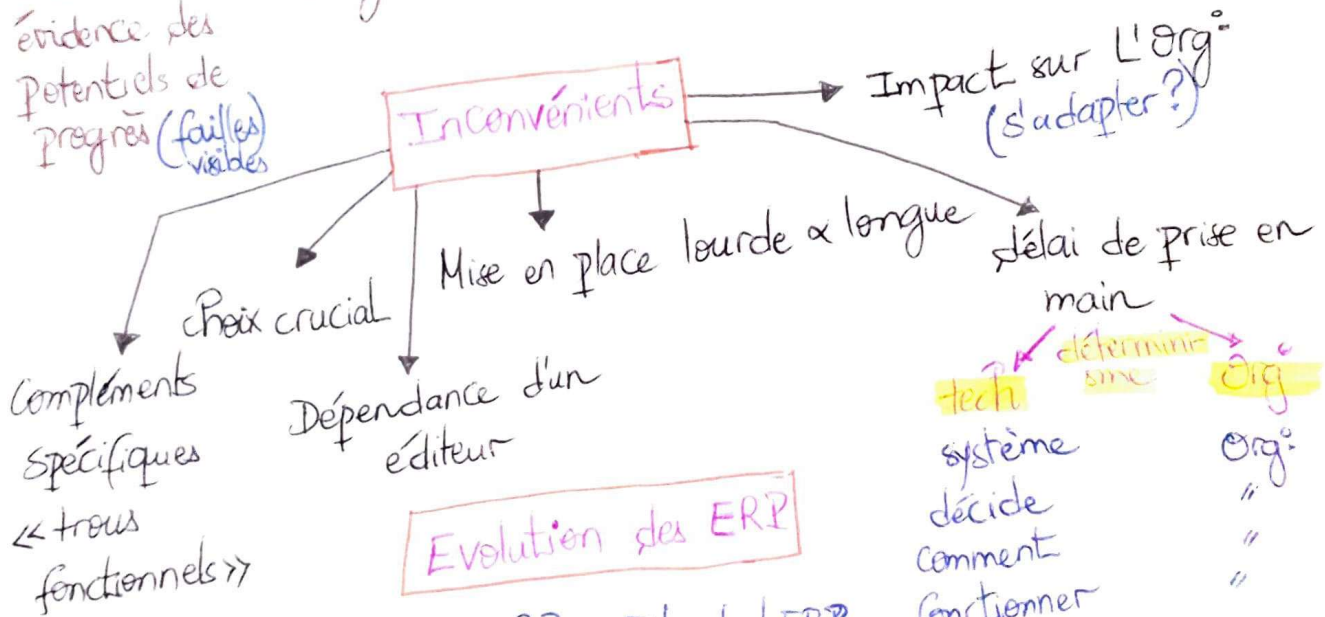 évidence des
Potentiels de
progrès (failles
visibles)
Inconvénients
Impact sur L'Org°
(s'adapter?)
Compléments
spécifiques
<< trous
fonctionnels >>
choix crucial
Dépendance d'un
éditeur
Mise en place lourde & longue
délai de prise en
main
détermini-
sme
tech
système
décide
comment
fonctionner
Org°
Org°
"
"
"
Evolution des ERP